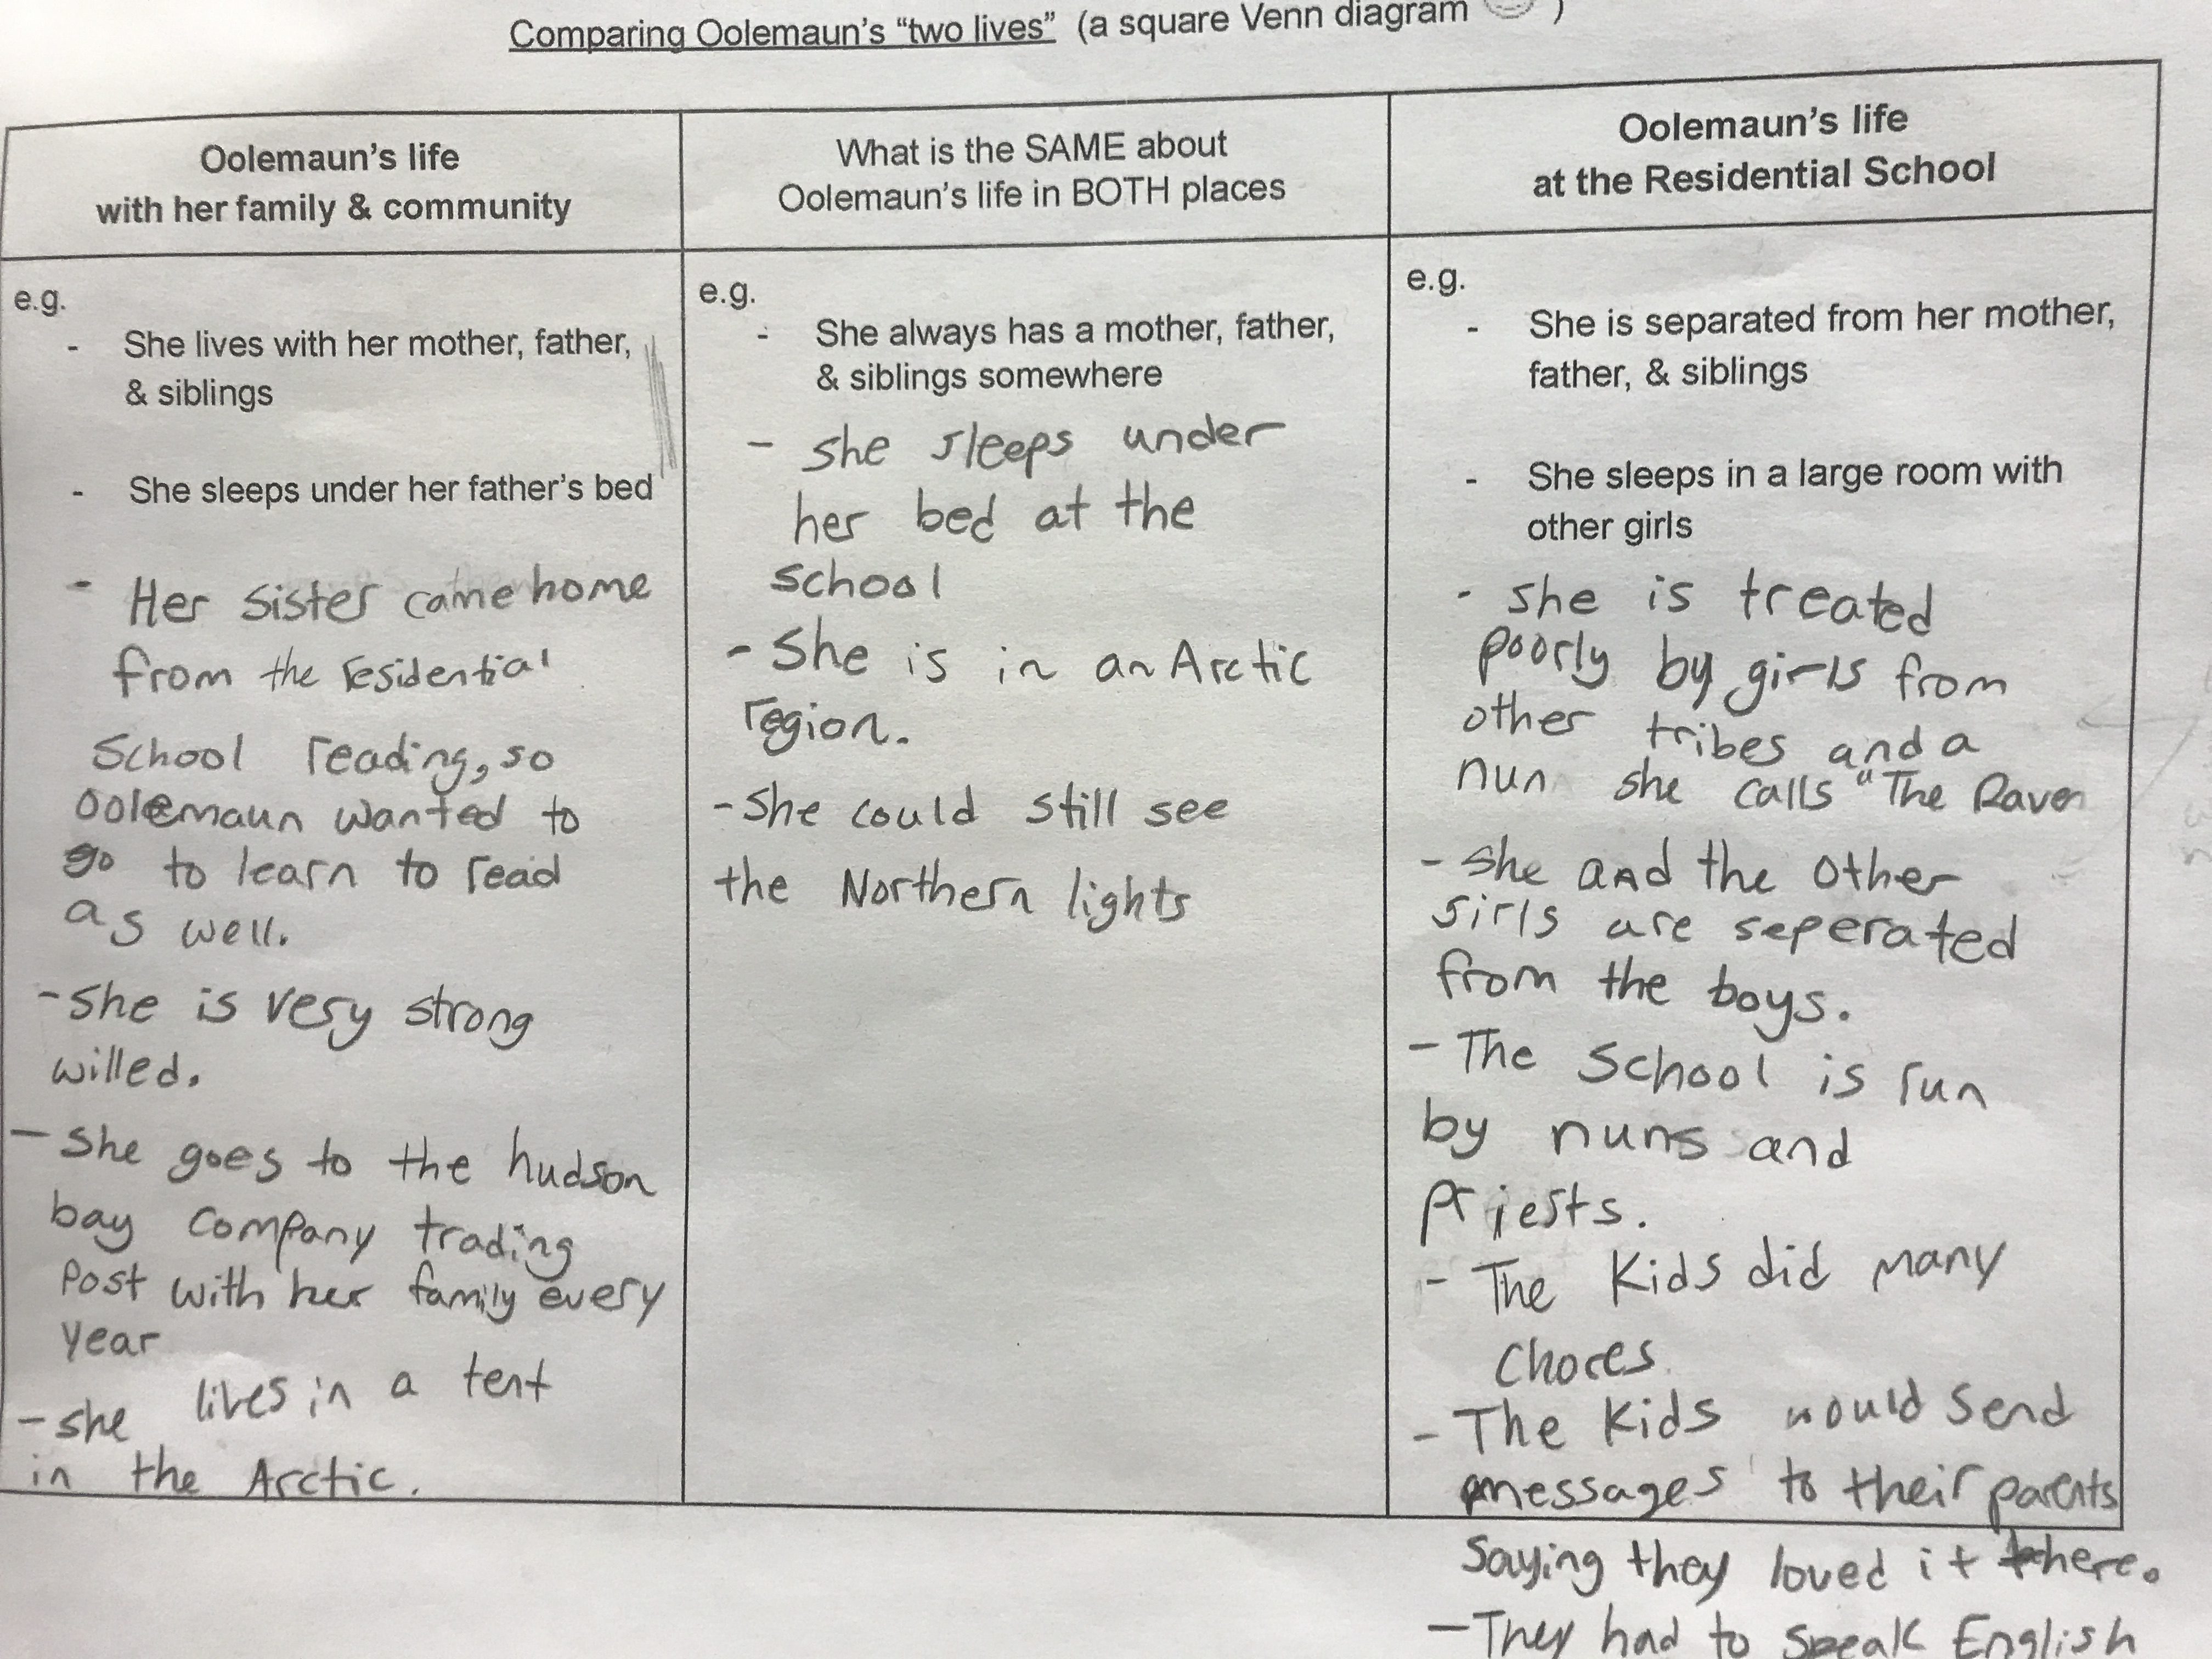 Comparing Oolemaun's "two lives" (a square Venn diagram )
Oolemaun's life
with her family & community
e.g.
- She lives with her mother, father,
& siblings
- She sleeps under her father's bed
- Her sister came home
from the residential
School reading, so
Oolemaun wanted to
go to learn to read
as well.
- She is very strong
willed.
- She goes to the hudson
bay company trading
Post with her family every
year
- she lives in a tent
in the Arctic.
What is the SAME about
Oolemaun's life in BOTH places
e.g.
- She always has a mother, father,
& siblings somewhere
- she sleeps under
her bed at the
school
- She is in an Arctic
region.
- She could still see
the Northern lights
Oolemaun's life
at the Residential School
e.g.
- She is separated from her mother,
father, & siblings
- She sleeps in a large room with
other girls
- she is treated
poorly by girls from
other tribes and a
nun she calls "The Raven
- she and the other
girls are seperated
from the boys.
- The School is run
by nuns and
Priests.
- The Kids did many
Chores.
- The Kids would send
messages to their parents
Saying they loved it there.
- They had to speak English